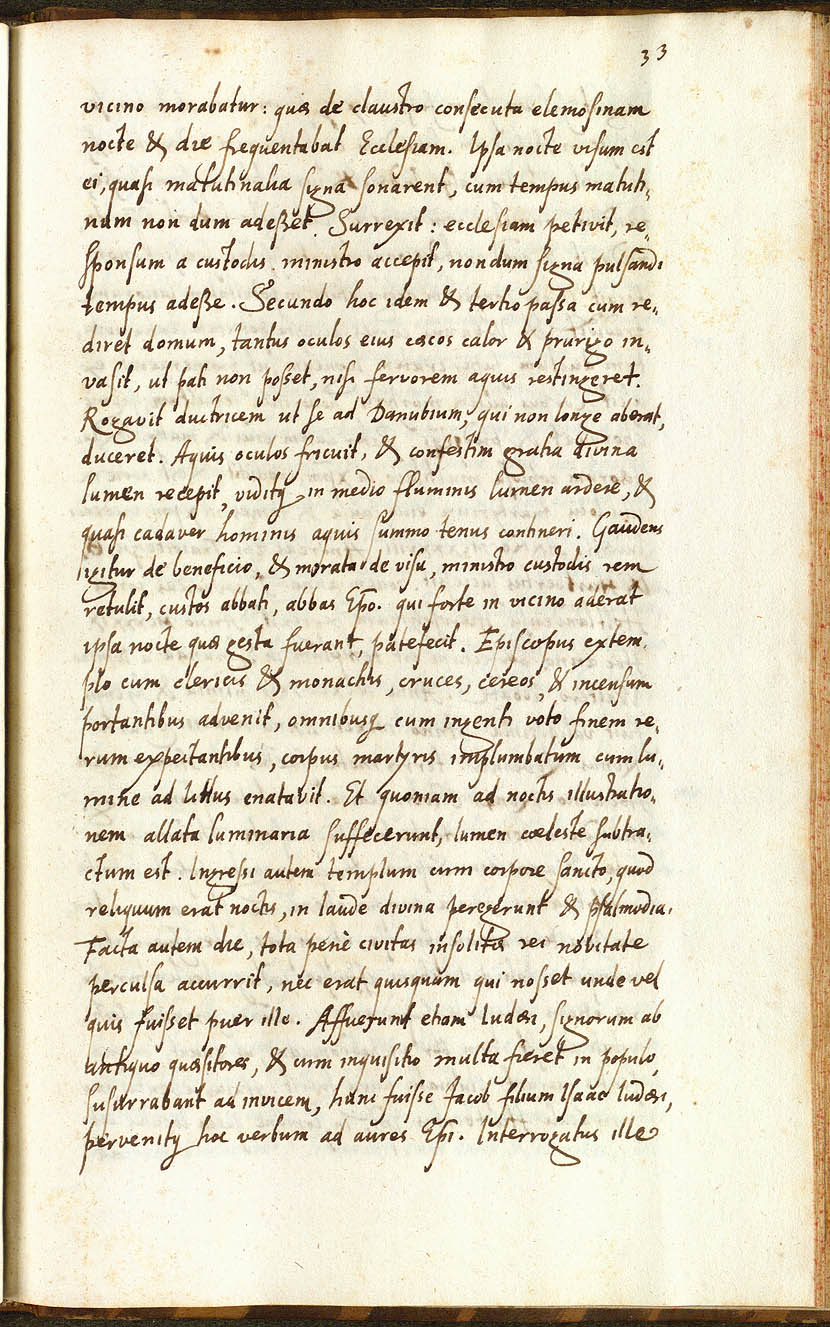 33
vicino morabatur: quæ de claustro consecuta elemosinam
nocte & die frequentabat Ecclesiam. Ipsa nocte visum est
ei, quasi matutinalia signa sonarent, cum tempus matuti,,
num non dum adesset. Surrexit: ecclesiam petivit, re,,
sponsum a custodis ministro accepit, nondum signa pulsandi
tempus adesse. Secundo hoc idem & tertio passa cum re,,
diret domum, tantus oculos eius cæcos calor & prurigo in,,
vasit, ut pati non posset, nisi fervorem aquis restingeret.
Rogavit ductricem ut se ad Danubium, qui non longe aberat,
duceret. Aquis oculos fricuit, & confestim gratia divina
lumen recepit, viditq; in medio fluminis lumen ardere, &
quasi cadaver hominis aquis summo tenus contineri. Gaudens
igitur de beneficio, & morata de visu, ministro custodis rem
retulit, custos abbati, abbas Epo. qui forte in vicino aderat
ipsa nocte quæ gesta fuerant, patefecit. Episcopus extem,
plo cum clericis & monachis, cruces, cereos, & incensum
portantibus advenit, omnibusq; cum ingenti voto finem re,,
rum expectantibus, corpus martyris implumbatum cum lu,,
mine ad littus enatavit. Et quoniam ad noctis illustratio,,
nem allata luminaria suffecerunt, lumen cœleste subtra,,
ctum est. Ingressi autem templum cum corpore sancto, quod
reliquum erat noctis, in laude divina peregerunt & psalmodia.
Facta autem die, tota penè civitas insolitæ rei novitate
perculsa accurrit, nec erat quisquam qui nosset unde vel
quis fuisset puer ille. Affuerunt etiam Iudæi, signorum ab
antiquo quæsitores, & cum inquisitio multa fieret in populo,
susurrabant ad invicem, hunc fuisse Jacob filium Isaac Iudæi,
pervenitq; hoc verbum ad aures Epi. Interrogatus ille